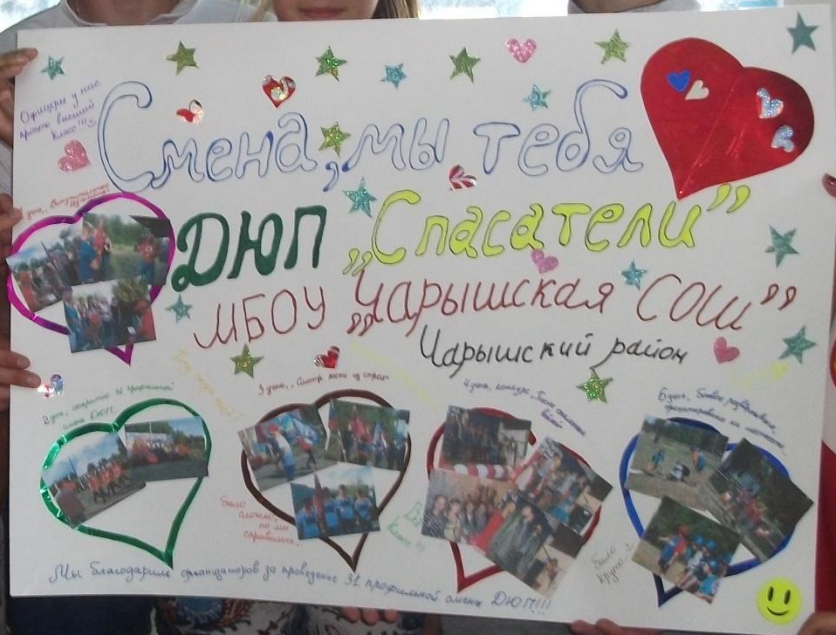 Офицеры у нас
просто высший
класс!!!
Смена, мы тебя
ДЮП „Спасатели”
МБОУ „Чарышская СОШ”
Чарышский район
1 день,
2 день, открытие 31 профильной
смены ДЮП.
3 день, „Смотр песни и строя”
4 день, конкурс „Песни
6 день, боевое развёртывание,
Было
сложно,
но мы
справились.
Класс!!!
было
круто!
Мы благодарим организаторов за проведение 31 профильной смены ДЮП!!!